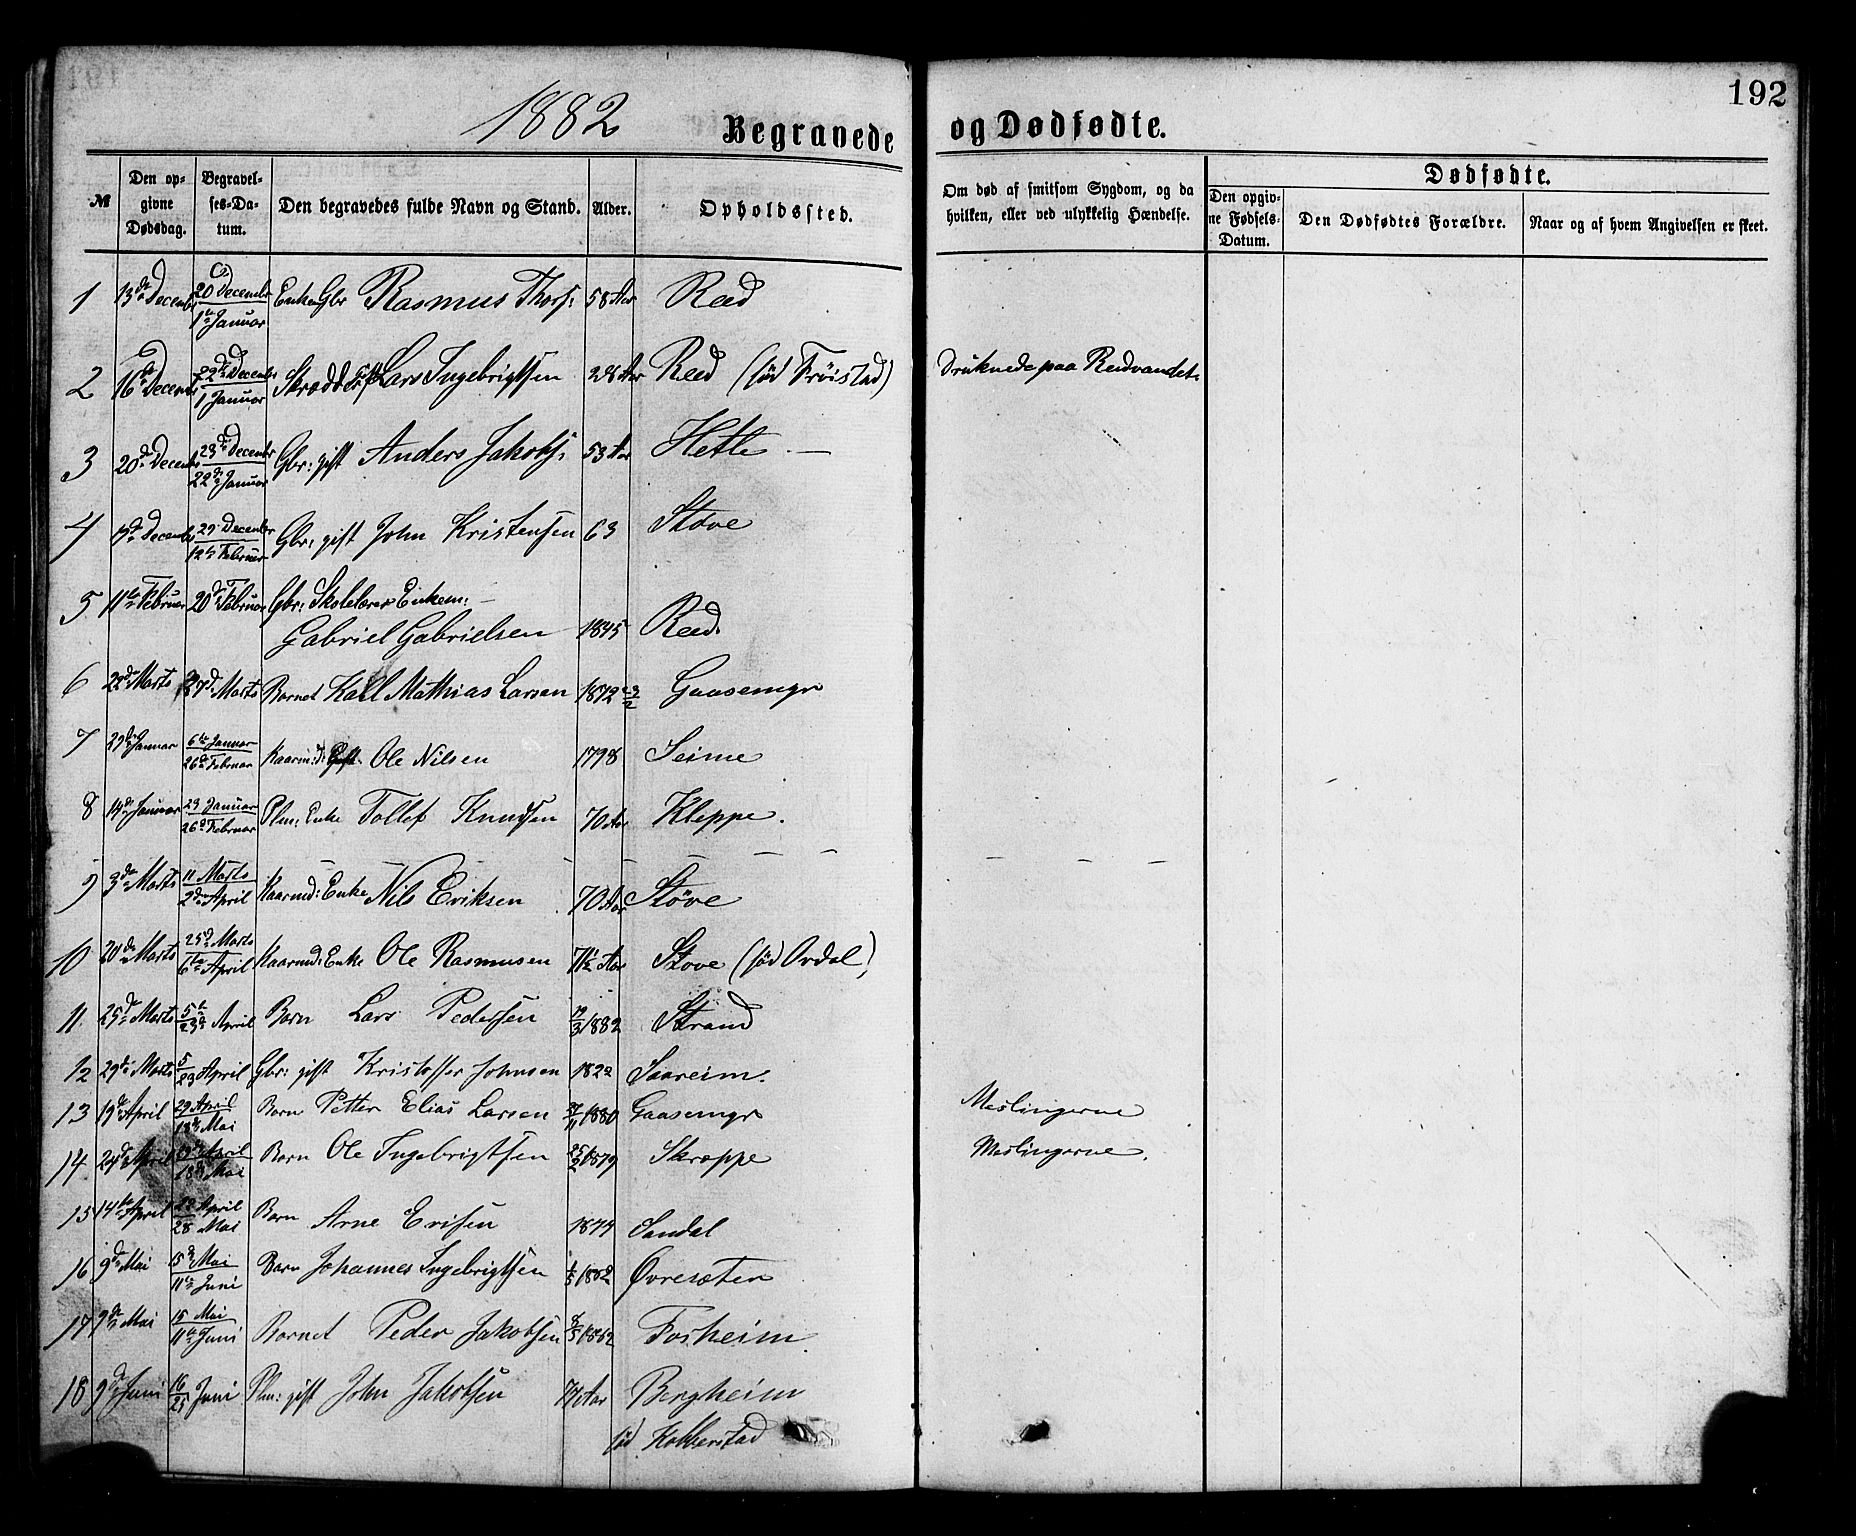 192
1882
Begravede og Dødfødte.
№ Den opgivne Dødsdag. Begravelses-Datum. Den begravedes fulde Navn og Stand. Alder. Opholdssted. Om død af smitsom Sygdom, og da hvilken, eller ved ulykkelig Hændelse. Dødfødte. Den opgivne Fødsels-Datum. Den Dødfødtes Forældre. Naar og af hvem Angivelsen er skeet.
1 13de Decembr 20 Decembr 1te Januar Enke Gbr Rasmus Thors: 58 Aar Reed
2 16de Decembr 22de Decembr 1 Januar Lars Ingebrigtsen 28 Aar Reed (fød Frøistad) Druknede paa Reedvandet.
3 20de Decembr 23de Decembr 22de Januar Gbr: gift Anders Jakobs: 53 Aar Hetle —
4 Decembr 29. Decembr 12te Februar Gbr: gift John Kristensen 63 Støve
5 11te Februar 20de Februar Gbr: Skolelærer Enkem:
Gabriel Gabrielsen 1845 Reed.
6 22de Marts 27de Marts Barnet Karl Mathias Larsen 1872 Gaasemyr
7 29de Januar 6te Januar 26de Februar Kaarmd: Gift. Ole Nilsen 1798 Seime
8 14de Januar 23 Januar 26de Februar Plm: Enke Tollef Knudsen 70 Aar Kleppe.
9 3de Marts 11 Marts 2den April Kaarmd: Enke Nils Eriksen 70 Aar Støve
10 20de Marts 25de Marts 6te April Kaarmd: Enke Ole Rasmusen 71½ Aar Støve (fød Ordal)
11. 25de Marts 5te 23de April Barn Lars Pedersen 19/3 1882 Strand
12 29de Marts 5 23 April Gbr: gift Kristoffer Johnsen 1822 Saareim.
13 19de April 29 April 18de Mai Barn Petter Elias Larsen 1880 Gaasemyr Meslingerne
14 24de April April 18de Mai Barn Ole Ingebrigtsen 1879 Skræppe Meslingerne.
15 14te April 22 April 28 Mai Barn Arne 1874 Sandal
16 9de Mai 15de Mai 11te Juni Barn Johannes Ingebrigtsen 1/5 1882 Øvresæter
17 9de Mai 15 Mai 11te Juni Barnet Peder Jakobsen 1882 Forheim.
18 9de Juni 16 25 Juni Plm: gift John Jakobsen 74 Aar Bergheim
fød Kobberstad